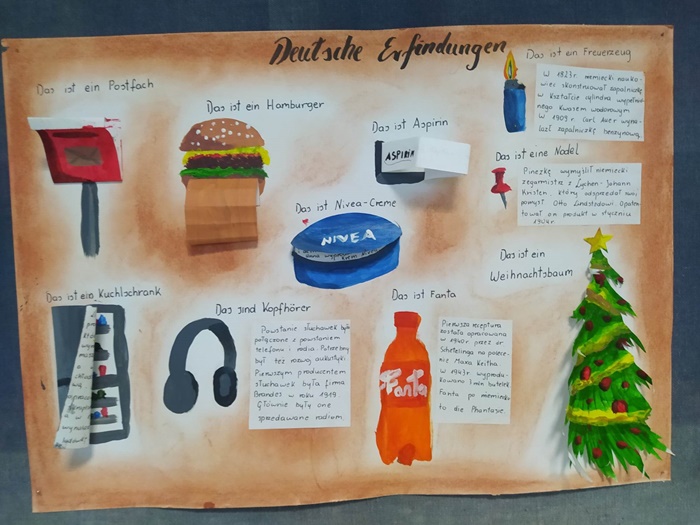 Deutsche Erfindungen
Das ist ein Feuerzeug
W 1823r. niemiecki nauko-
wiec skonstruował zapalniczkę
w kształcie cylindra wypełnio-
nego kwasem wodorowym
W 1909r. Carl Auer wyna-
lazł zapalniczkę benzynową.
Das ist ein Postfach
Das ist ein Hamburger
Das ist Aspirin
ASPIRIN
Das ist eine Nadel
Pinezkę wymyślił niemiecki
zegarmistrz z Lychen- Johann
Kirsten, który odsprzedał swój
pomysł Otto Lindstedowi. Opaten-
tował on produkt w styczniu
1904r.
Das ist Nivea-Creme
NIVEA
Das ist ein
Weihnachtsbaum
Das ist ein Kuchlschrank
Das sind Kopfhörer
Powstanie słuchawek było
połączone z powstaniem
telefonu i radia. Potrzebny
był też rozwój akustyki.
Pierwszym producentem
słuchawek była firma
Brandes w roku 1919
Głównie były one
sprzedawane radiom
Das ist Fanta
Fanta
Pierwsza receptura
została opracowana
w 1940r. przez dr
Schetelinga na polece-
nie Maxa Keitha
w 1943r wyprodu-
kowano 3mln butelek
Fanta po niemiecku
to die Phantasie.